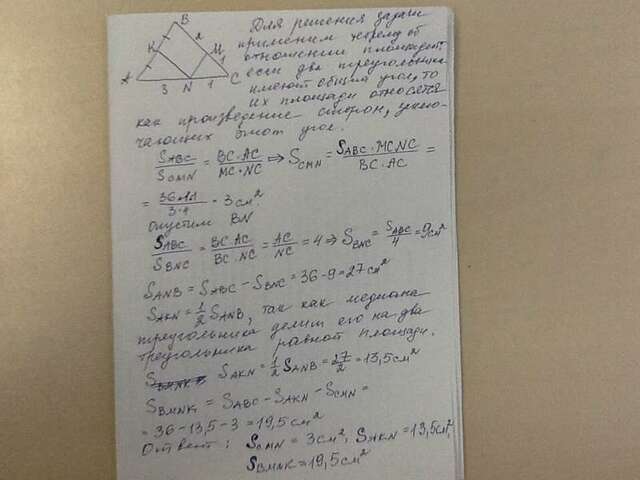 B
K 2 M
1
A 3 N 1 C
Для решения задачи
применим теорему об
отношении площадей:
если два треугольника
имеют общий угол, то
их площади относятся
как произведение сторон, заклю-
чающих этот угол.
S_ABC / S_CMN = BC·AC / MC·NC ⇒ S_CMN = S_ABC·MC·NC / BC·AC =
= 36·1·1 / 3·4 = 3 см².
Опустим BN
S_ABC / S_BNC = BC·AC / BC·NC = AC / NC = 4 ⇒ S_BNC = S_ABC / 4 = 9 см²
S_ANB = S_ABC − S_BNC = 36 − 9 = 27 см²
S_AKN = 1/2 S_ANB, так как медиана
треугольника делит его на два
треугольника равной площади.
S_AKN = 1/2 S_ANB = 27/2 = 13,5 см²
S_BMNK = S_ABC − S_AKN − S_CMN =
= 36 − 13,5 − 3 = 19,5 см²
Ответ: S_CMN = 3 см², S_AKN = 13,5 см²,
S_BMNK = 19,5 см²